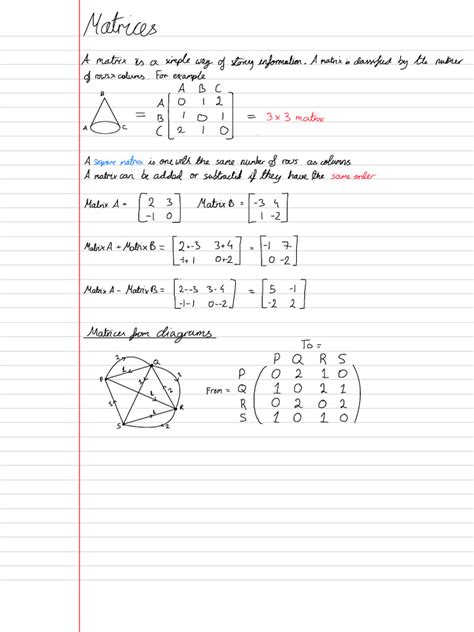 Matrices
A matrix is a simple way of storing information. A matrix is classified by the number
of rows x colums. For example
B
A C
A B C
= A [0 1 2]
B [1 0 1] = 3x3 matrix
C [2 1 0]
A square matrix is one with the same number of rows as columns
A matrix can be added or subtracted if they have the same order
Matrix A = [2 3] Matrix B = [-3 4]
[-1 0] [1 -2]
Matrix A + Matrix B = [2+-3 3+4] = [-1 7]
[-1+1 0+-2] [0 -2]
Matrix A - Matrix B = [2--3 3-4] = [5 -1]
[-1-1 0--2] [-2 2]
Matrices from diagrams
To =
P Q R S
P (0 2 1 0)
From = Q (1 0 2 1)
R (0 2 0 2)
S (1 0 1 0)
P Q R S